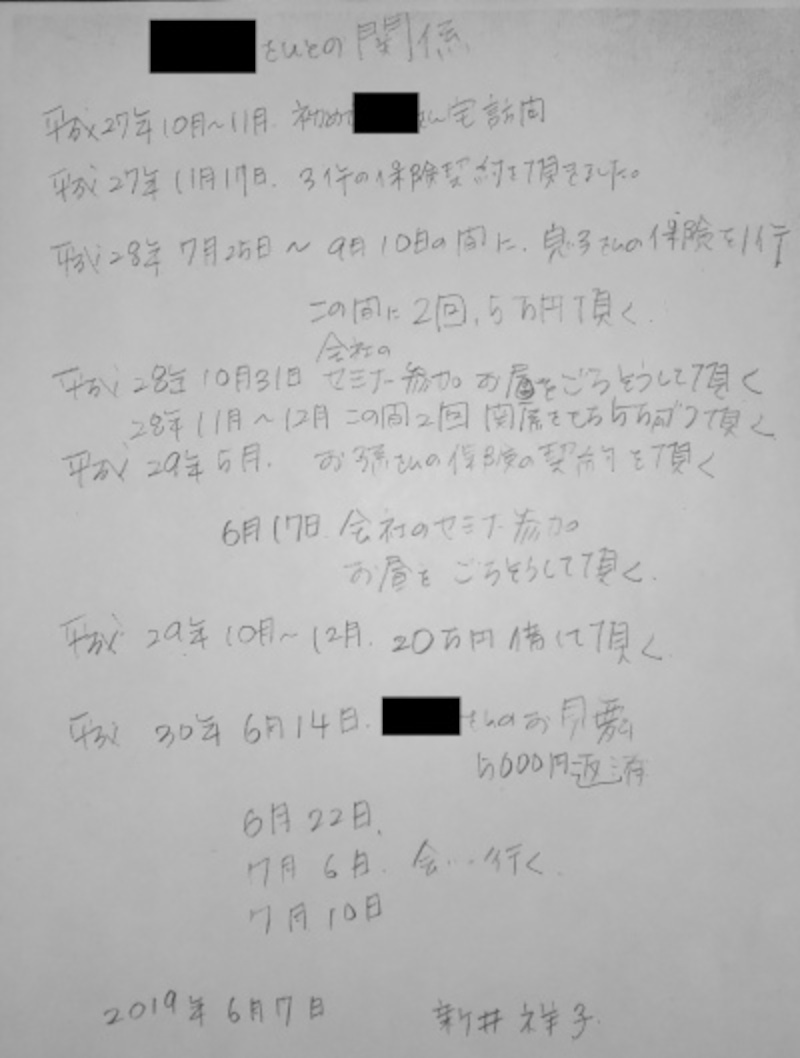 さんとの関係
平成27年10月~11月. 初めて さん宅訪問
平成27年11月17日. 3件の保険契約を頂きました。
平成28年 7月25日 ~ 9月10日の間に. 息子さんの保険を1件
この間に2回, 5万円頂く.
会社の
平成28年10月31日 セミナー参加 お昼をごちそうして頂く
28年11月~12月 この間2回 5万円づつ頂く
平成29年5月. お孫さんの保険の契約を頂く
6月17日 会社のセミナー参加
お昼を ごちそうして頂く.
平成29年10月~12月. 20万円 借して頂く.
平成 30年 6月14日. さんのお見舞
5000円返済
6月22日.
7月 6日. 会... 行く.
7月10日
2019年 6月7日 新井祥子.